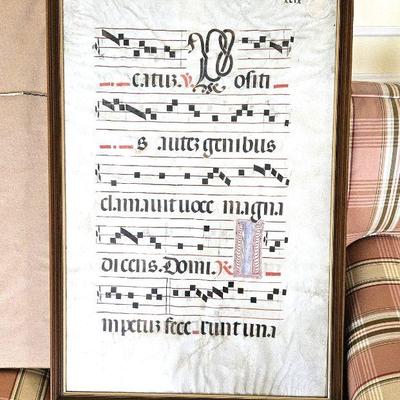 catuz. ℣. Positi
s autez genibus
clamauit uoce magna
dicens. Domi. ℟. I
mpetuz fecerunt una